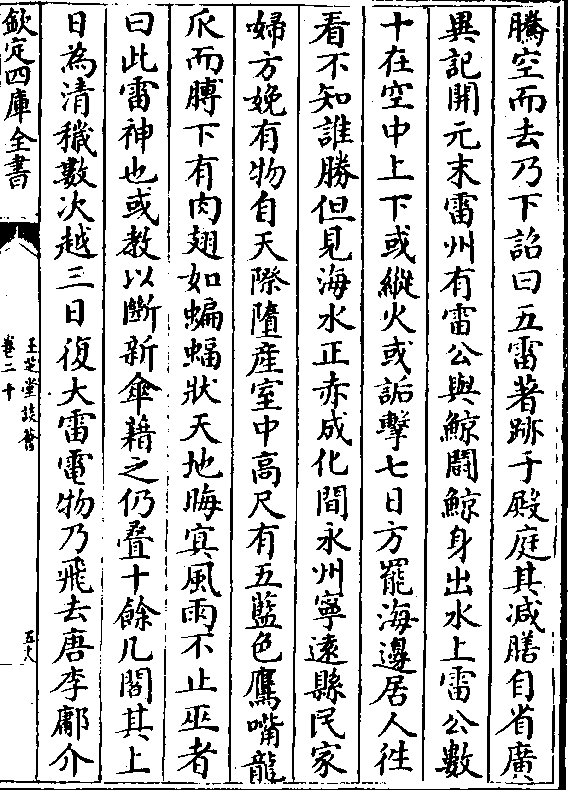 騰空而去乃下詔曰五雷著跡于殿庭其減膳自省廣
異記開元末雷州有雷公與鯨鬭鯨身出水上雷公數
十在空中上下或縱火或詬擊七日方罷海邊居人徃
看不知誰勝但見海水正赤成化間永州寧遠縣民家
婦方娩有物自天際墮産室中高尺有五藍色鷹嘴龍
爪而膊下有肉翅如蝙蝠狀天地晦㝠風雨不止巫者
曰此雷神也或教以斷新傘藉之仍疊十餘几閣其上
日為清穢數次越三日復大雷電物乃飛去唐李鄘介
欽定四庫全書
玉芝堂談薈
卷二十
五八